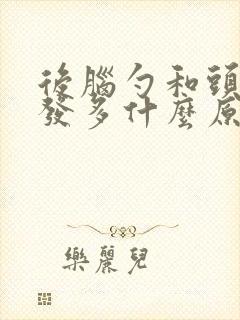 後腦勺和頭
發多什麼原
樂麗兒